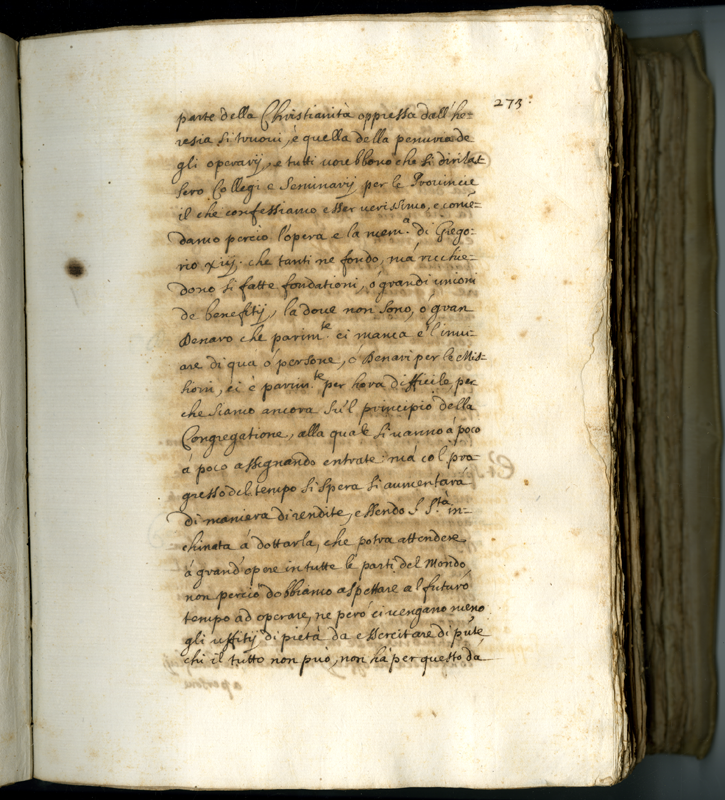 273.
parte della Christianità oppressa dall'he=
resia si truovi, è quella della penuria de
gli operarij, e tutti vorebbono che si dirizas
sero Collegi e Seminarij per le Provincie
il che confessiamo esser verissimo, e comē=
damo perciò l'opera e la mem.a di Grego=
rio xiij. che tanti ne fondò, mà richie=
dono si fatte fondationi, ò grandi unioni
de benefitij, la dove non sono, ò gran
Denaro che parim.te ci manca e l'invi=
are di qua ò persone, ò Denari per le Mis=
sioni, ci è parim.te per hora difficile per
che siamo ancora sù'l principio della
Congregatione, alla quale si vanno à poco
à poco assignando entrate: mà col pro=
gresso del tempo si spera si aumentarà
di maniera di rendite, essendo S. S.tà in=
chinata à dottarla, che potrà attendere
à grand'opere in tutte le parti del Mondo
non perciò dobbiamo aspettare al futuro
tempo ad operare, ne però ci vengano meno
gli uffitij di pietà da essercitare di
chi il tutto non può, non hà per questo da